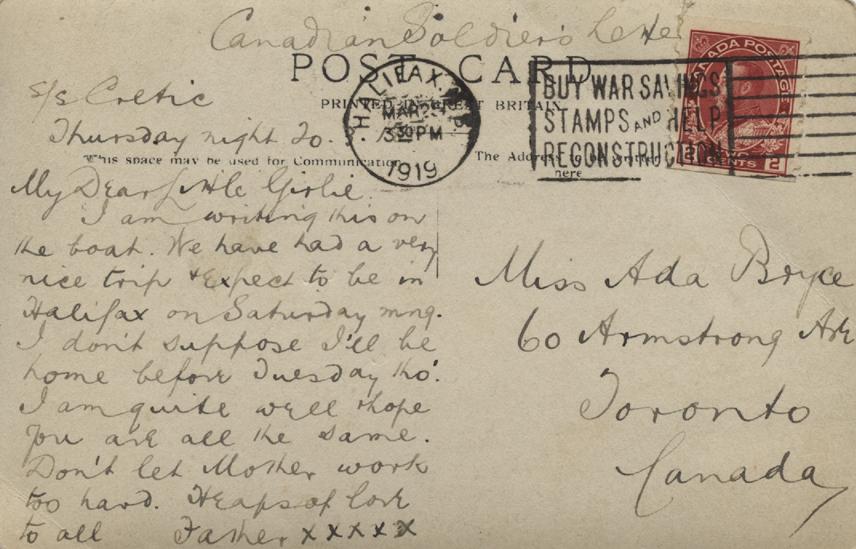 Canadian Soldier's Letter
POST CARD
PRINTED IN GREAT BRITAIN
This space may be used for Communication
The Address only
here
HALIFAX
MAR
3 30 PM
1919
BUY WAR SAVINGS
STAMPS AND HELP
RECONSTRUCTION
CANADA POSTAGE
2 CENTS 2
S/S Cretic
Thursday night 20.
My Dear Little Girlie.
I am writing this on
the boat. We have had a very
nice trip & Expect to be in
Halifax on Saturday mng.
I don't suppose I'll be
home before Tuesday tho'.
I am quite well & hope
you are all the same.
Don't let Mother work
too hard. Heaps of love
to all Father x x x x x
Miss Ada Bryce
60 Armstrong Ave
Toronto
Canada